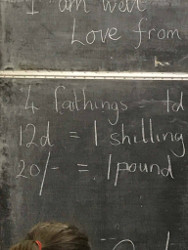 I am well
Love from
4 farthings - 1d
12d = 1 shilling
20/- = 1 pound